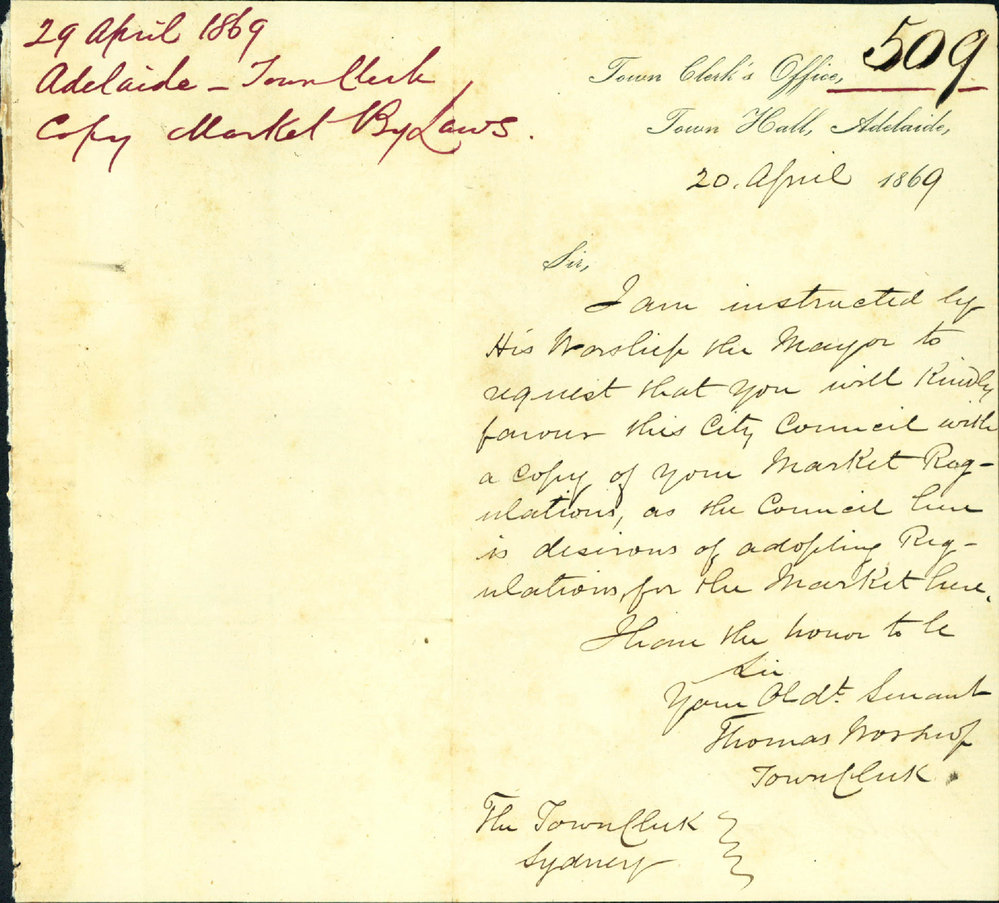 29 April 1869
Adelaide - Town Clerk
Copy Market By Laws.
509
Town Clerk's Office,
Town Hall, Adelaide,
20. April 1869
Sir,
I am instructed by
His Worship the Mayor to
request that you will kindly
favour this City Council with
a copy of your Market Reg-
ulations, as the Council here
is desirous of adopting Reg-
ulations, for the Market here.
I have the honor to be
Sir
Your Obdt. Servant
Thomas Worsnop
Town Clerk
The Town Clerk
Sydney